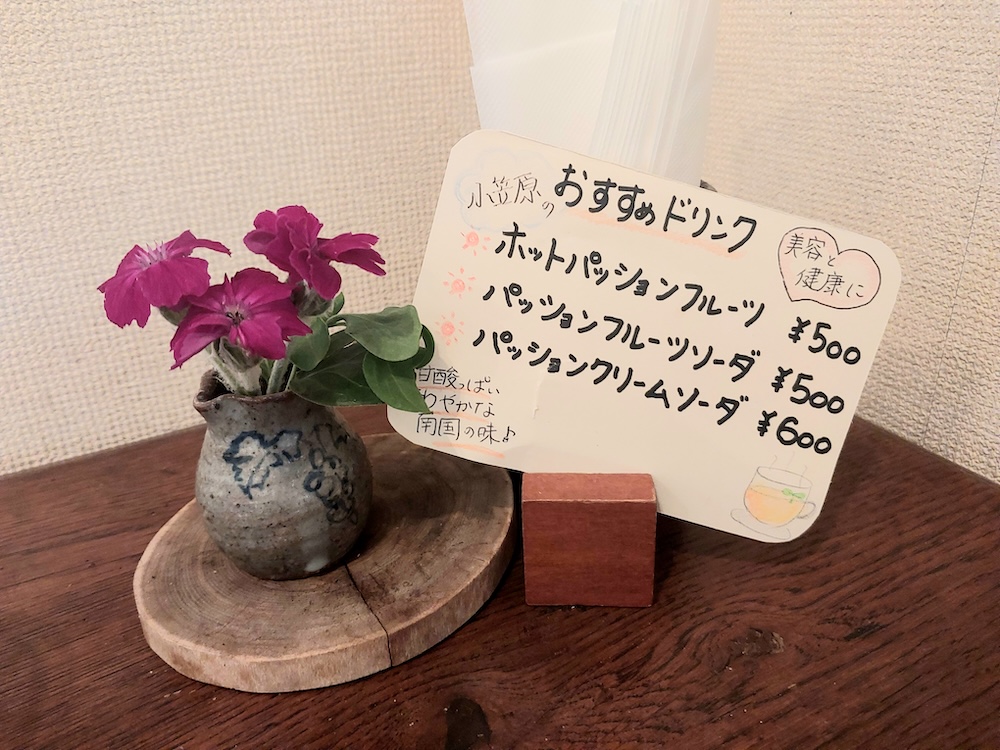 小笠原の おすすめドリンク
美容と
健康に
ホットパッションフルーツ ¥500
パッションフルーツソーダ ¥500
パッションクリームソーダ ¥600
甘酸っぱい
わやかな
南国の味♪